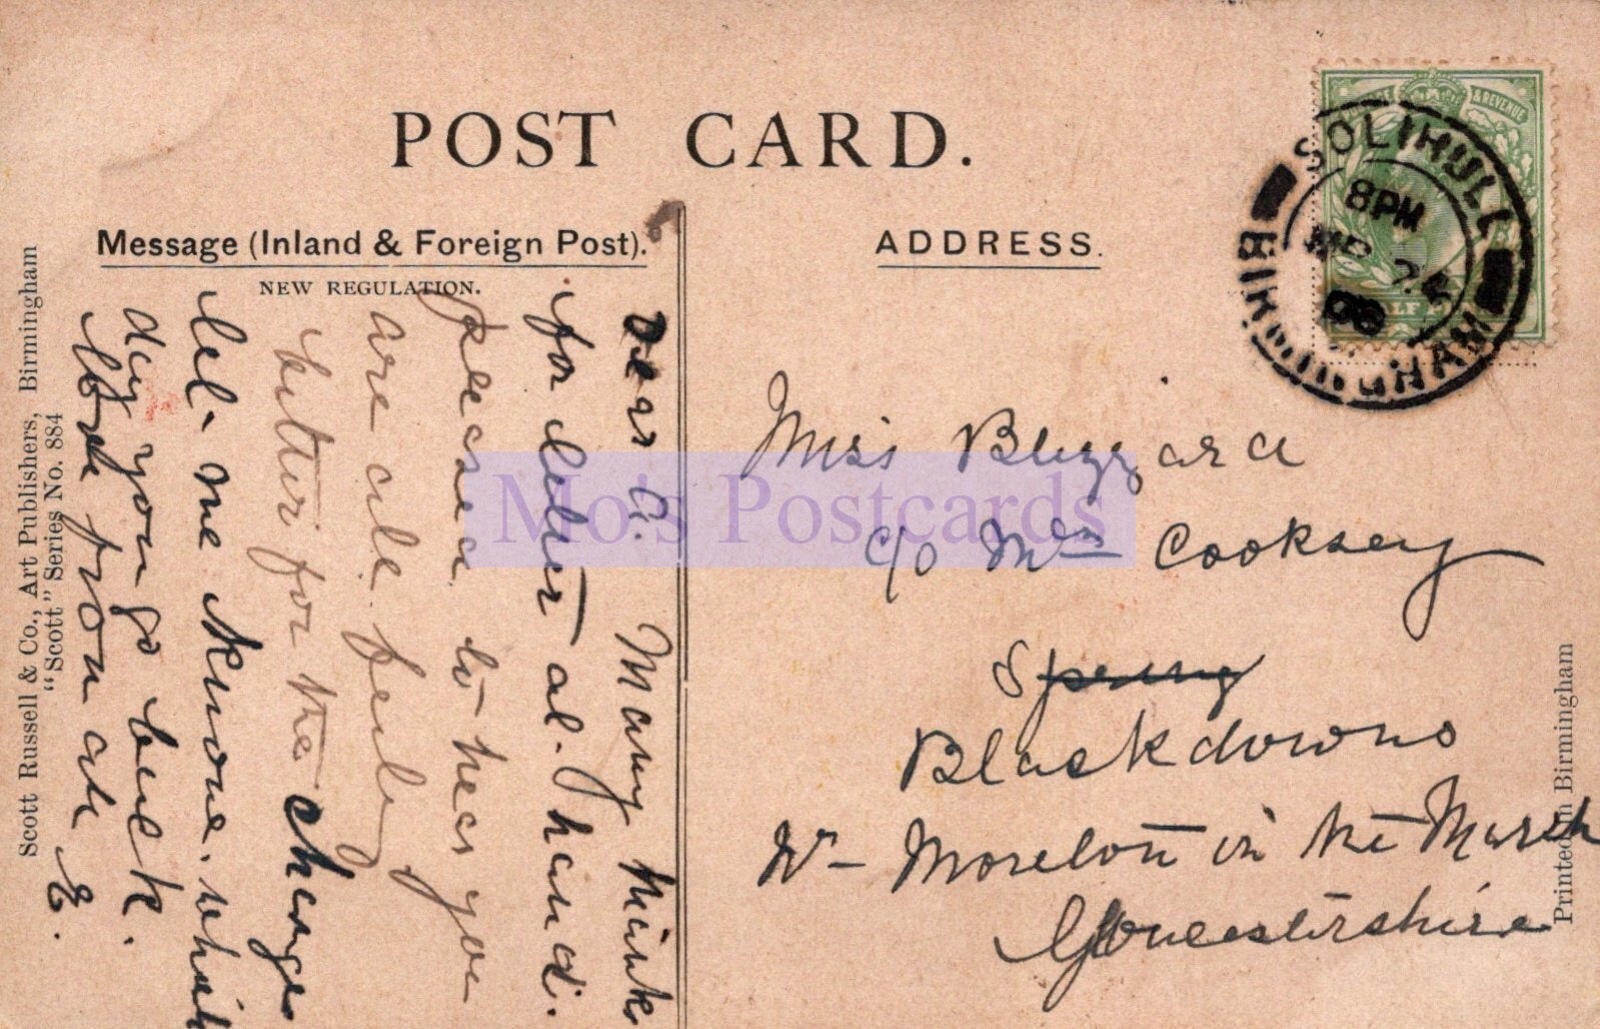 POST CARD.
Message (Inland & Foreign Post).
NEW REGULATION.
ADDRESS.
& REVENUE
SOLIHULL
8 PM
24
BIRMINGHAM
Dear C. Many thinks
for letter at hand.
pleased to hear you
are all feeling
better for the change
let me know which
day you go back.
Love from all E.
Miss Blizzard
c/o Mrs Cooksey
Spring
Blackdowns
Nr Moreton in the Marsh
Gloucestershire
Scott Russell & Co., Art Publishers, Birmingham
"Scott" Series No. 884
Printed in Birmingham
Mo's Postcards